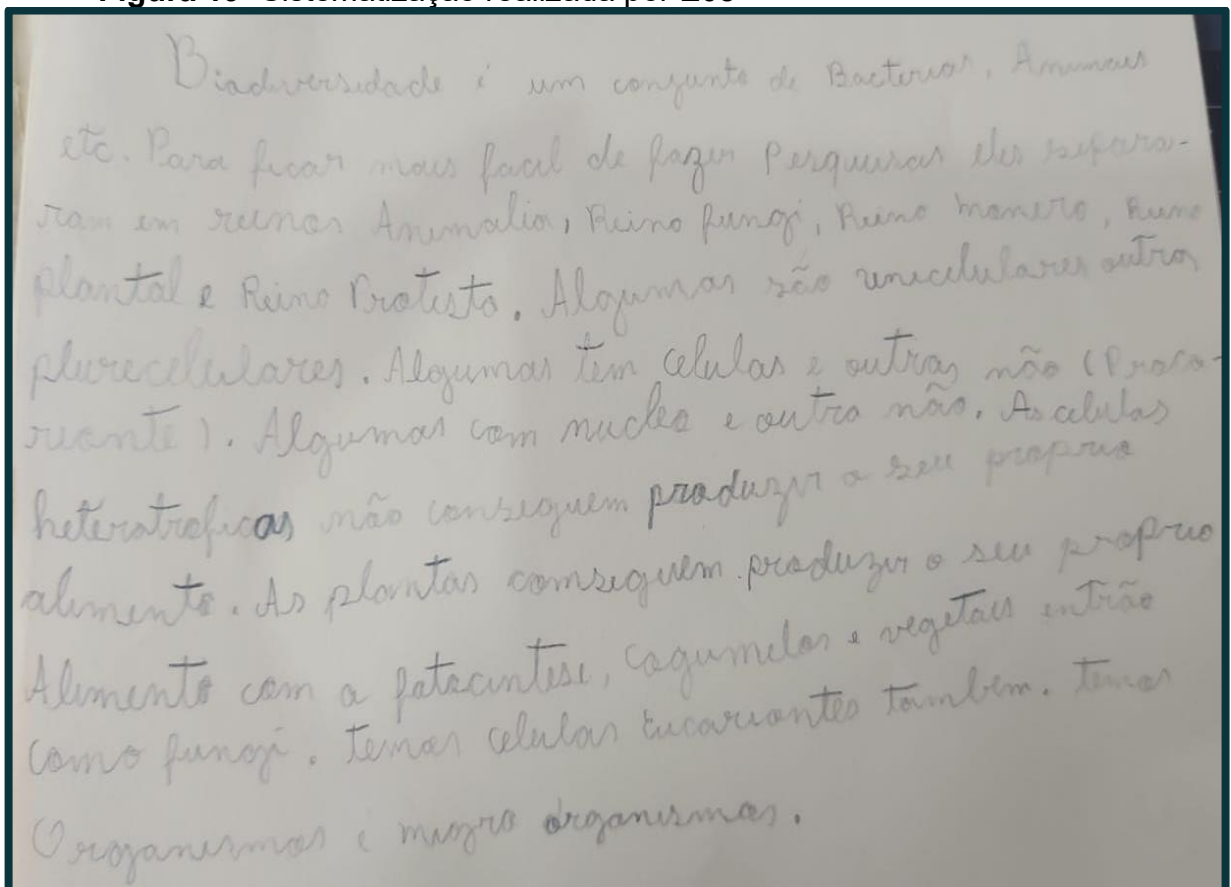 Biadiversidade é um conjunto de Bacterias, Animais
etc. Para ficar mais facil de fazer Pesquisas eles separa-
ram em reinos Animalia, Reino fungi, Reino monero, Reino
plantal e Reino Protisto. Algumas são unicelulares outras
plurecelulares. Algumas tem celulas e outras não (Proco-
riante). Algumas com nucleo e outra não. As celulas
heterotroficas não conseguem produzir o seu proprio
alimento. As plantas comseguem produzir o seu proprio
Alimento com a fotocintese, cogumelos e vegetais entrão
como fungi. Temos celulas Eucariontes tambem. Temos
Organismos e migro organismos.